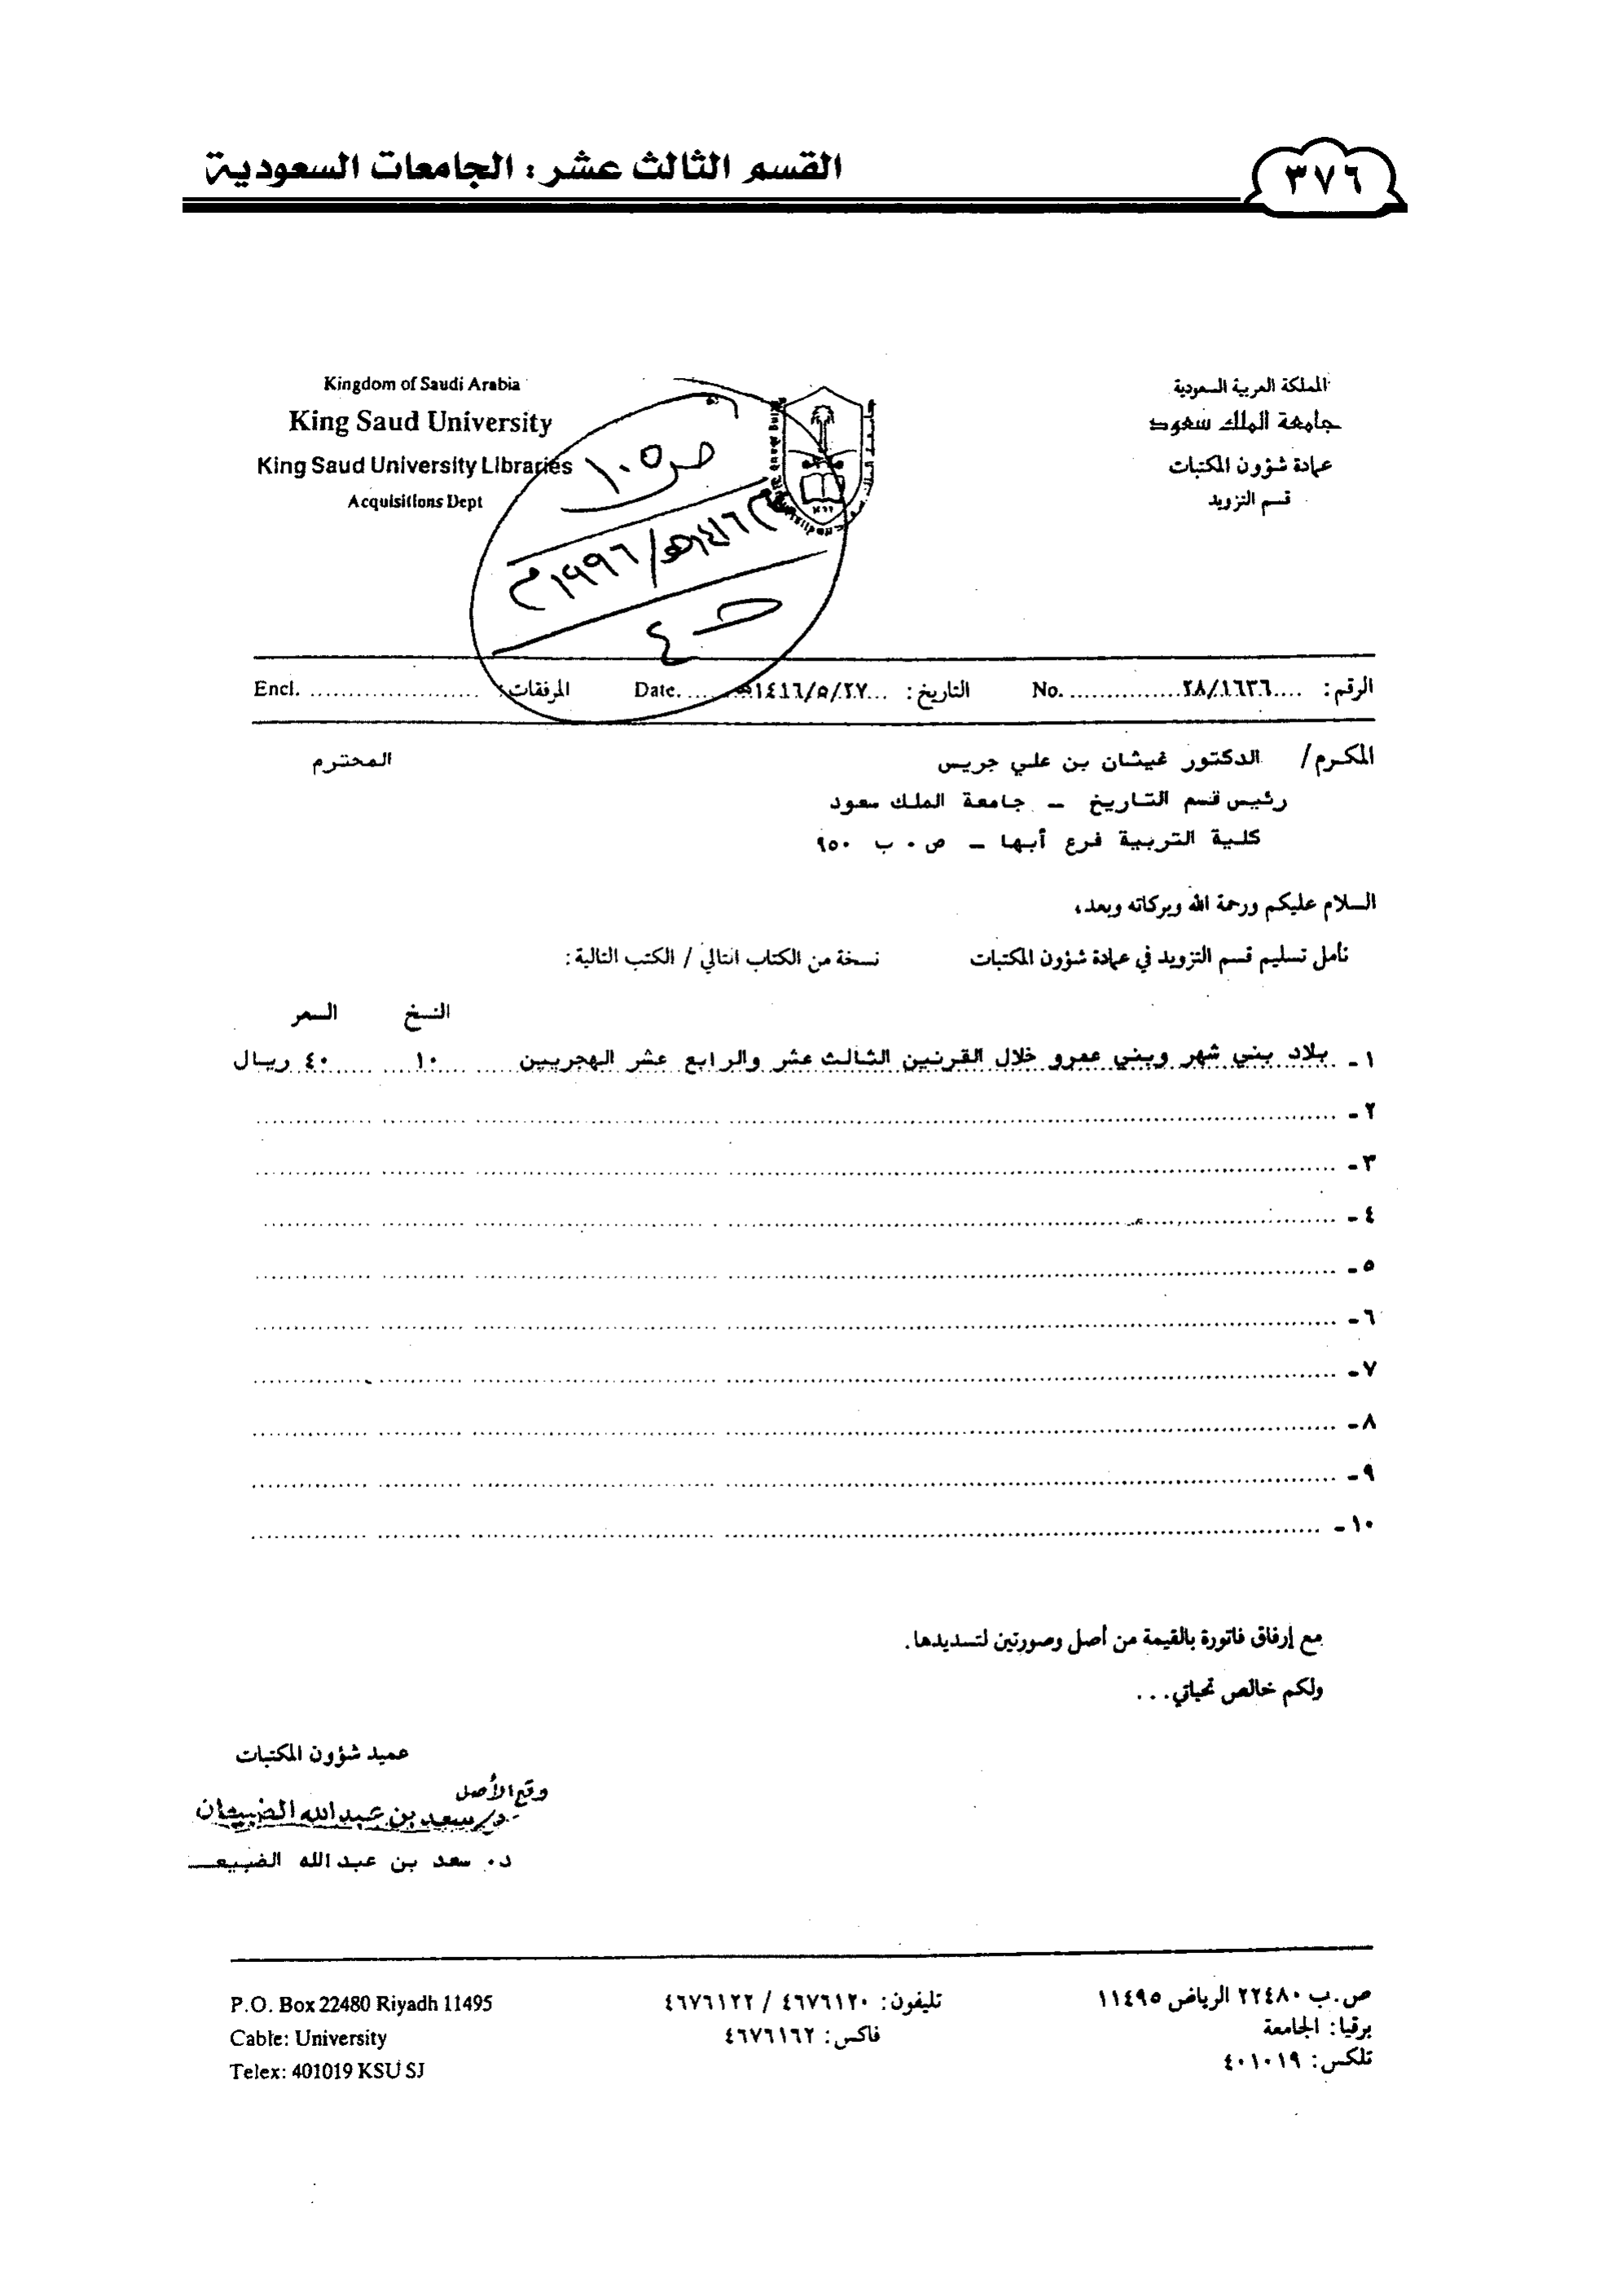 القسم الثالث عشر : الجامعات السعودية
٣٧٦
المملكة العربية السعودية
جامعة الملك سعود
عمادة شؤون المكتبات
قسم التزويد
Kingdom of Saudi Arabia
King Saud University
King Saud University Libraries
Acquisitions Dept
ص ١٠٥
١٤١٦هـ/ ١٩٩٦م
ح ٤
الرقم : ....٢٨/١٦٣٦............... No. التاريخ : ...٢٧/٥/١٤١٦هـ...... Date. المرفقات : ...................... Encl.
المكرم / الدكتور غيثان بن علي جريس المحترم
رئيس قسم التاريخ – جامعة الملك سعود
كلية التربية فرع أبها – ص٠ ب ٩٥٠
السلام عليكم ورحمة الله وبركاته وبعد،
نأمل تسليم قسم التزويد في عمادة شؤون المكتبات نسخة من الكتاب التالي / الكتب التالية :
النسخ السعر
١ - بلاد بني شهر وبني عمرو خلال القرنين الثالث عشر والرابع عشر الهجريين ١٠ ٤٠ ريال
٢ -
٣ -
٤ -
٥ -
٦ -
٧ -
٨ -
٩ -
١٠ -
مع إرفاق فاتورة بالقيمة من أصل وصورتين لتسديدها.
ولكم خالص تحياتي...
عميد شؤون المكتبات
وقع الأصل
د/ سعد بن عبدالله الضبيعان
د. سعد بن عبدالله الضبيعـــ
ص.ب ٢٢٤٨٠ الرياض ١١٤٩٥
برقيا: الجامعة
تلكس: ٤٠١٠١٩
تليفون: ٤٦٧٦١٢٠ / ٤٦٧٦١٢٢
فاكس: ٤٦٧٦١٦٢
P.O. Box 22480 Riyadh 11495
Cable: University
Telex: 401019 KSU SJ